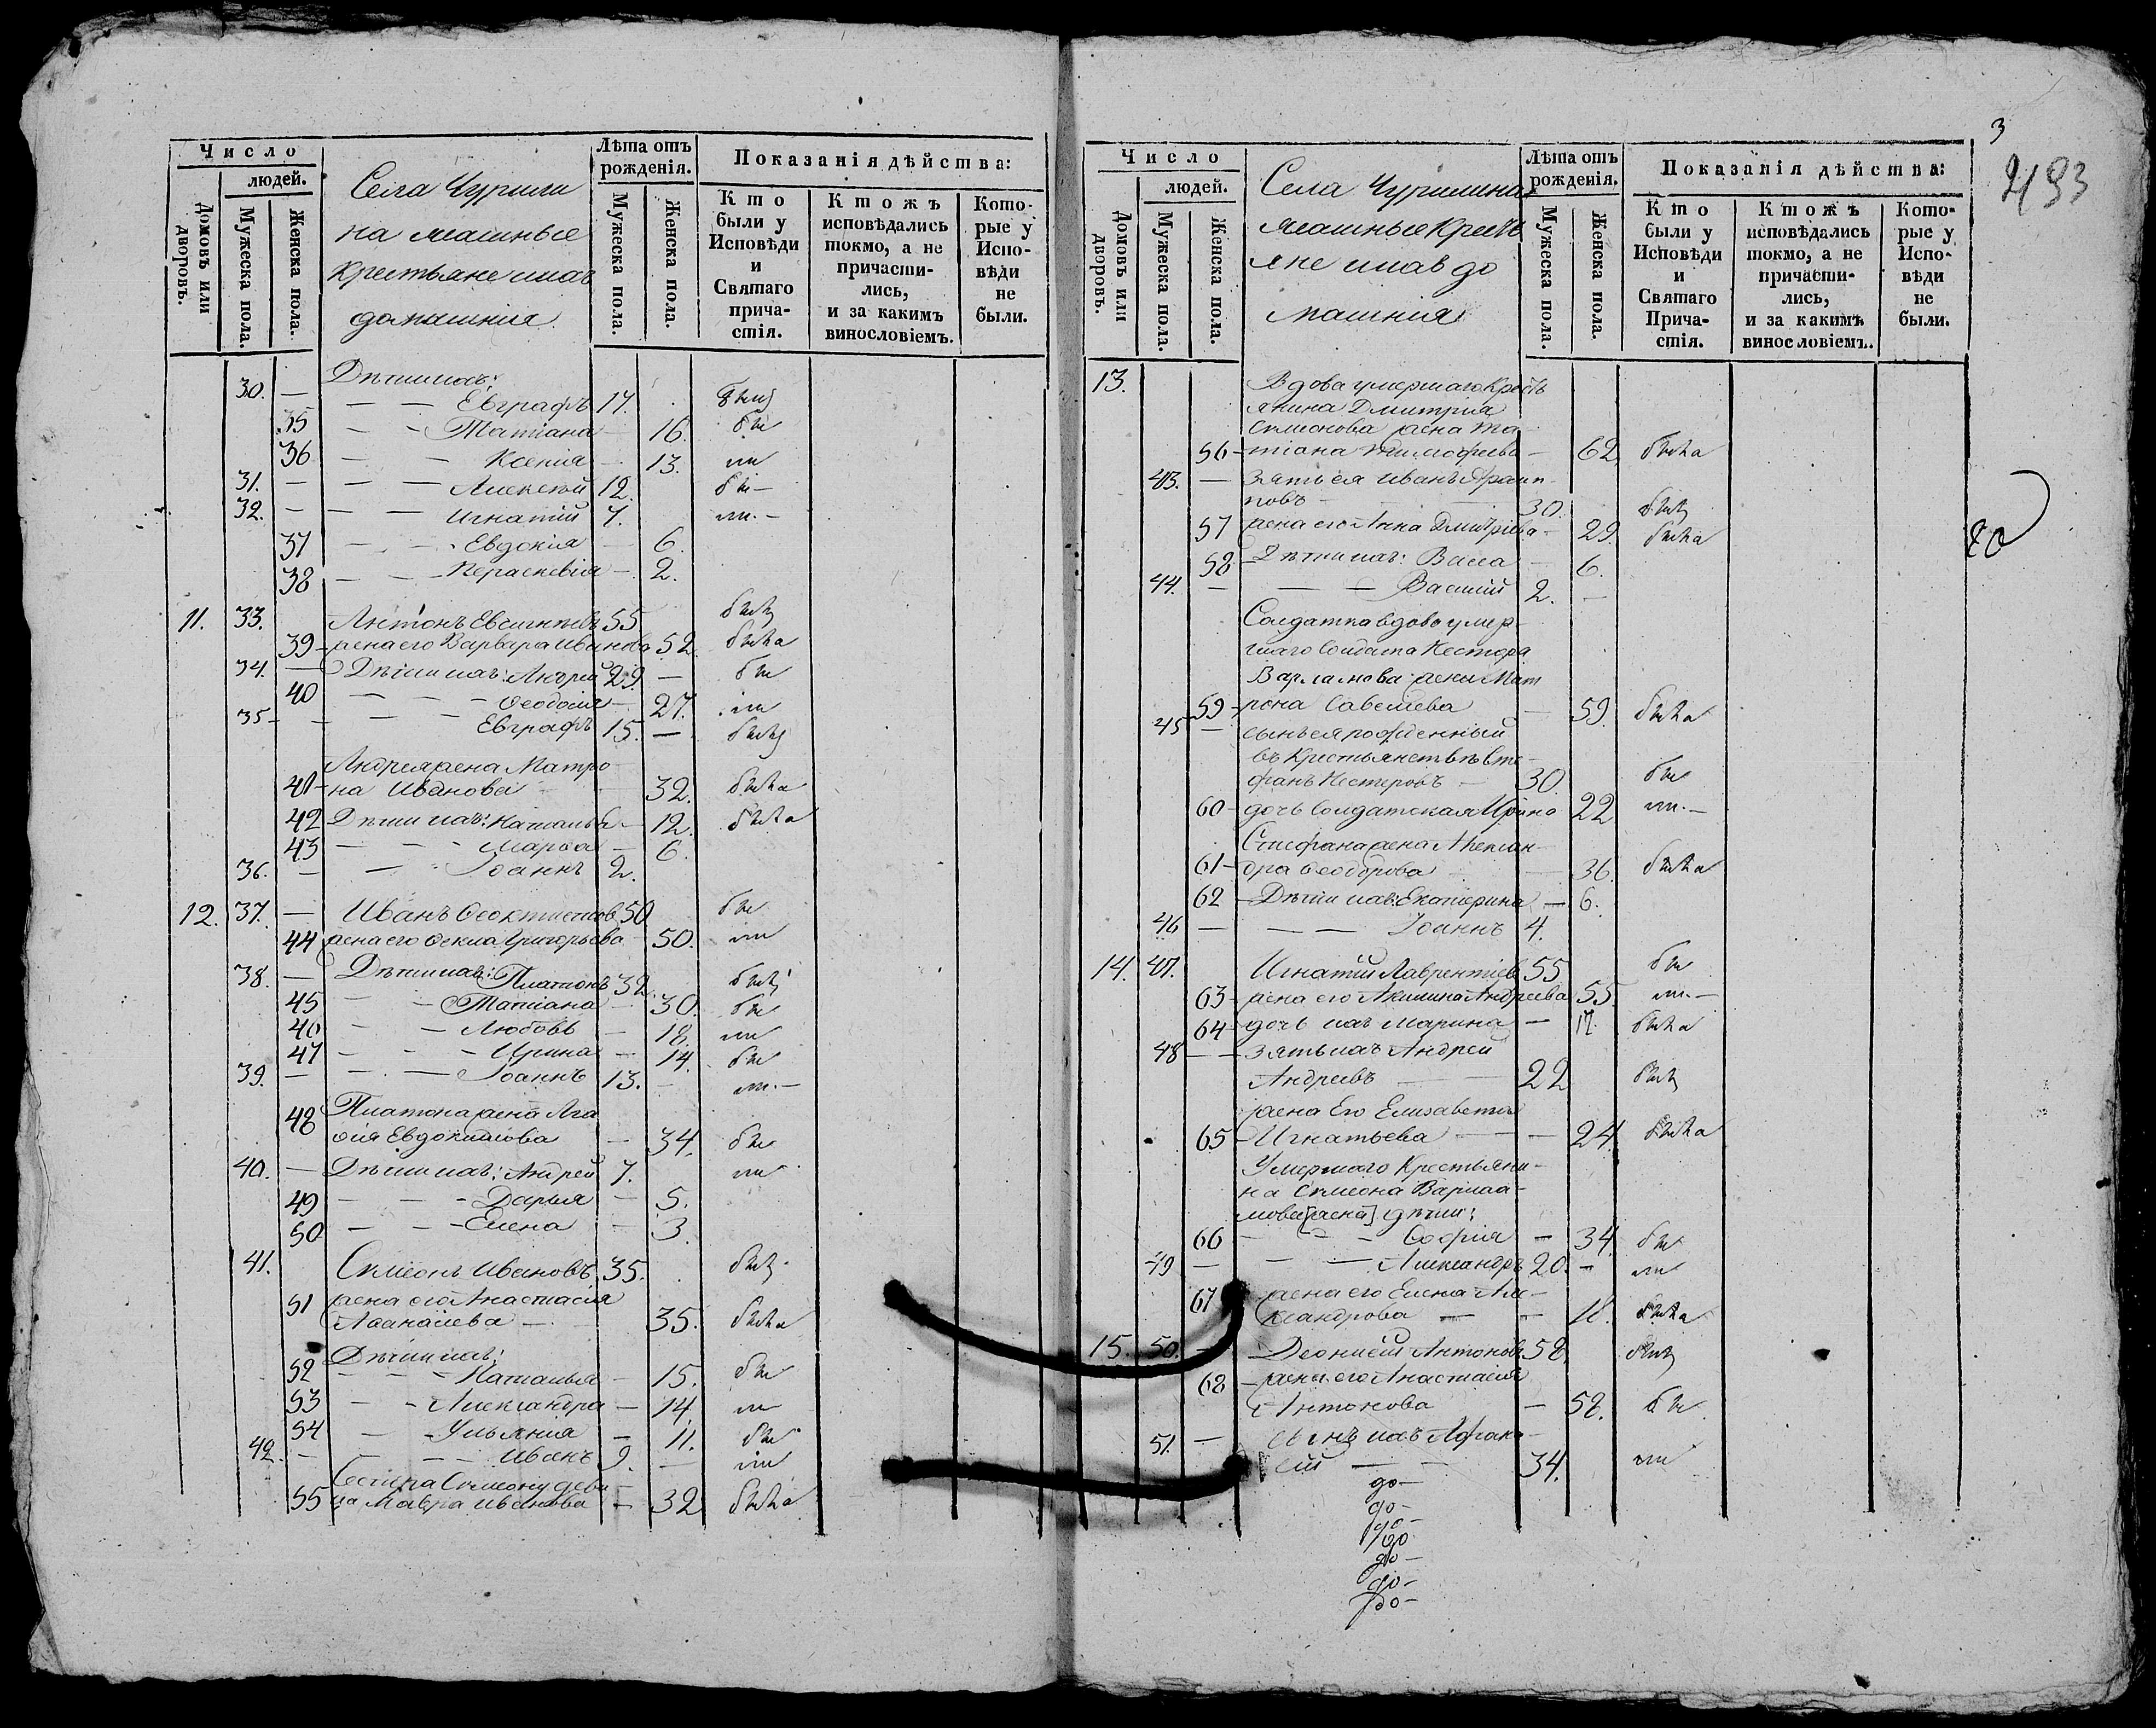 Число
людей.
Домовъ или дворовъ.
Мужеска пола.
Женска пола.
Села Чурили
на ясашные
крестьяне ихъ
домашнія
Лѣта отъ рожденія.
Мужеска пола.
Женска пола.
Показанія дѣйства:
Кто были у Исповѣди и Святаго причастія.
Ктожъ исповѣдались токмо, а не причастились, и за какимъ винословіемъ.
Которые у Исповѣди не были.
Дѣти ихъ:
30. — — — Евграфъ 17. былъ
35 — — Татіана — 16. бы
36 — — Ксенія — 13.
31. — — — Алексѣй 12. бы —
32. — — — Игнатій 7.
37 — — Евдокія — 6.
38 — — Параскевія — 2.
11. 33. Антонъ Евсигнѣевъ 55 былъ
39 — жена его Варвара Иванова 52. была
34. — Дѣти ихъ: Андрей 29. — бы
40 — — — Ѳеодосія — 27.
35 — — — — Евграфъ 15. — былъ
Андрея жена Матро
41 — на Иванова 32. была
42 Дѣти ихъ: Наталья — 12. была
43 — — — Марѳа — 6.
36. — — Іоаннъ 2.
12. 37. — Иванъ Ѳеоктистовъ 50 бы
44 жена его Ѳекла Григорьева 50.
38. — Дѣти ихъ: Платонъ 32. былъ
45 — — Татіана — 30. бы
46 — — Любовь — 18.
47 — — — Ирина — 14. бы
39. — — — Іоаннъ 13. —
48 Платона жена Ага
ѳія Евдокимова — 34. бы
40. — Дѣти ихъ: Андрей 7.
49 — — — Дарья — 5.
50 — — — Елена — 3.
41. Симеонъ Ивановъ 35. былъ
51 жена его Анастасія
Аѳанасіева — 35. была
Дѣти ихъ:
52 — — — Наталья — 15. бы
53 — — Александра — 14.
54 — — Ульянія — 11. бы
42. — — — — Иванъ 9. —
Сестра Симеону деви
55 ца Мавра Иванова — 32 была
3
493
Число
людей.
Домовъ или дворовъ.
Мужеска пола.
Женска пола.
Села Чурилина
ясашные Кресть
яне ихъ до
машнія
Лѣта отъ рожденія.
Мужеска пола.
Женска пола.
Показанія дѣйства:
Кто были у Исповѣди и Святаго Причастія.
Ктожъ исповѣдались токмо, а не причастились, и за какимъ винословіемъ.
Которые у Исповѣди не были.
13. Вдова умершаго Кресть
янина Дмитрія
Симеонова жена Та
56 — тіана Тимофеева — 62. была
43. — зять ея Иванъ Архип
повъ — 30. былъ
57 жена его Анна Дмитріева — 29. была
58 Дѣти ихъ: Васса — 6.
44. — — — Василій 2. —
Солдатка вдова умер
шаго Солдата Нестора
Варламова жена Мат
59 — рона Савеліева — 59. была
45 — сынъ ея рожденный
въ Крестьянствѣ Сте
фанъ Нестеровъ — 30. бы
60 — дочь Солдатская Ирина 22 —
Стефана жена Алексан
61 — дра Ѳеодорова — 36. была
62 — Дѣти ихъ: Екатерина — 6.
46 — — — Іоаннъ 4.
14. 47. Игнатій Лаврентіевъ 55 бы
63 — жена его Акилина Андреева 55. —
64 — дочь ихъ Марина — 17. была
48 — — зять ихъ Андрей
Андреевъ — 22 былъ
жена Его Елизавета
65 — Игнатьева — — 24. была
Умершаго Крестьяни
на Симеона Варлаа
мова [жена] дѣти:
66 — — — Софія — 34. бы
49 — — — Александръ 20. —
67 жена его Елена Але
ксандрова — — 18. была
15. 50. — Деонисій Антоновъ 58. былъ
68 — жена его Анастасія
Антонова — 58. бы
51. — сынъ ихъ
ей — 34.
до —
до —
до —
до
до —
до —
до —